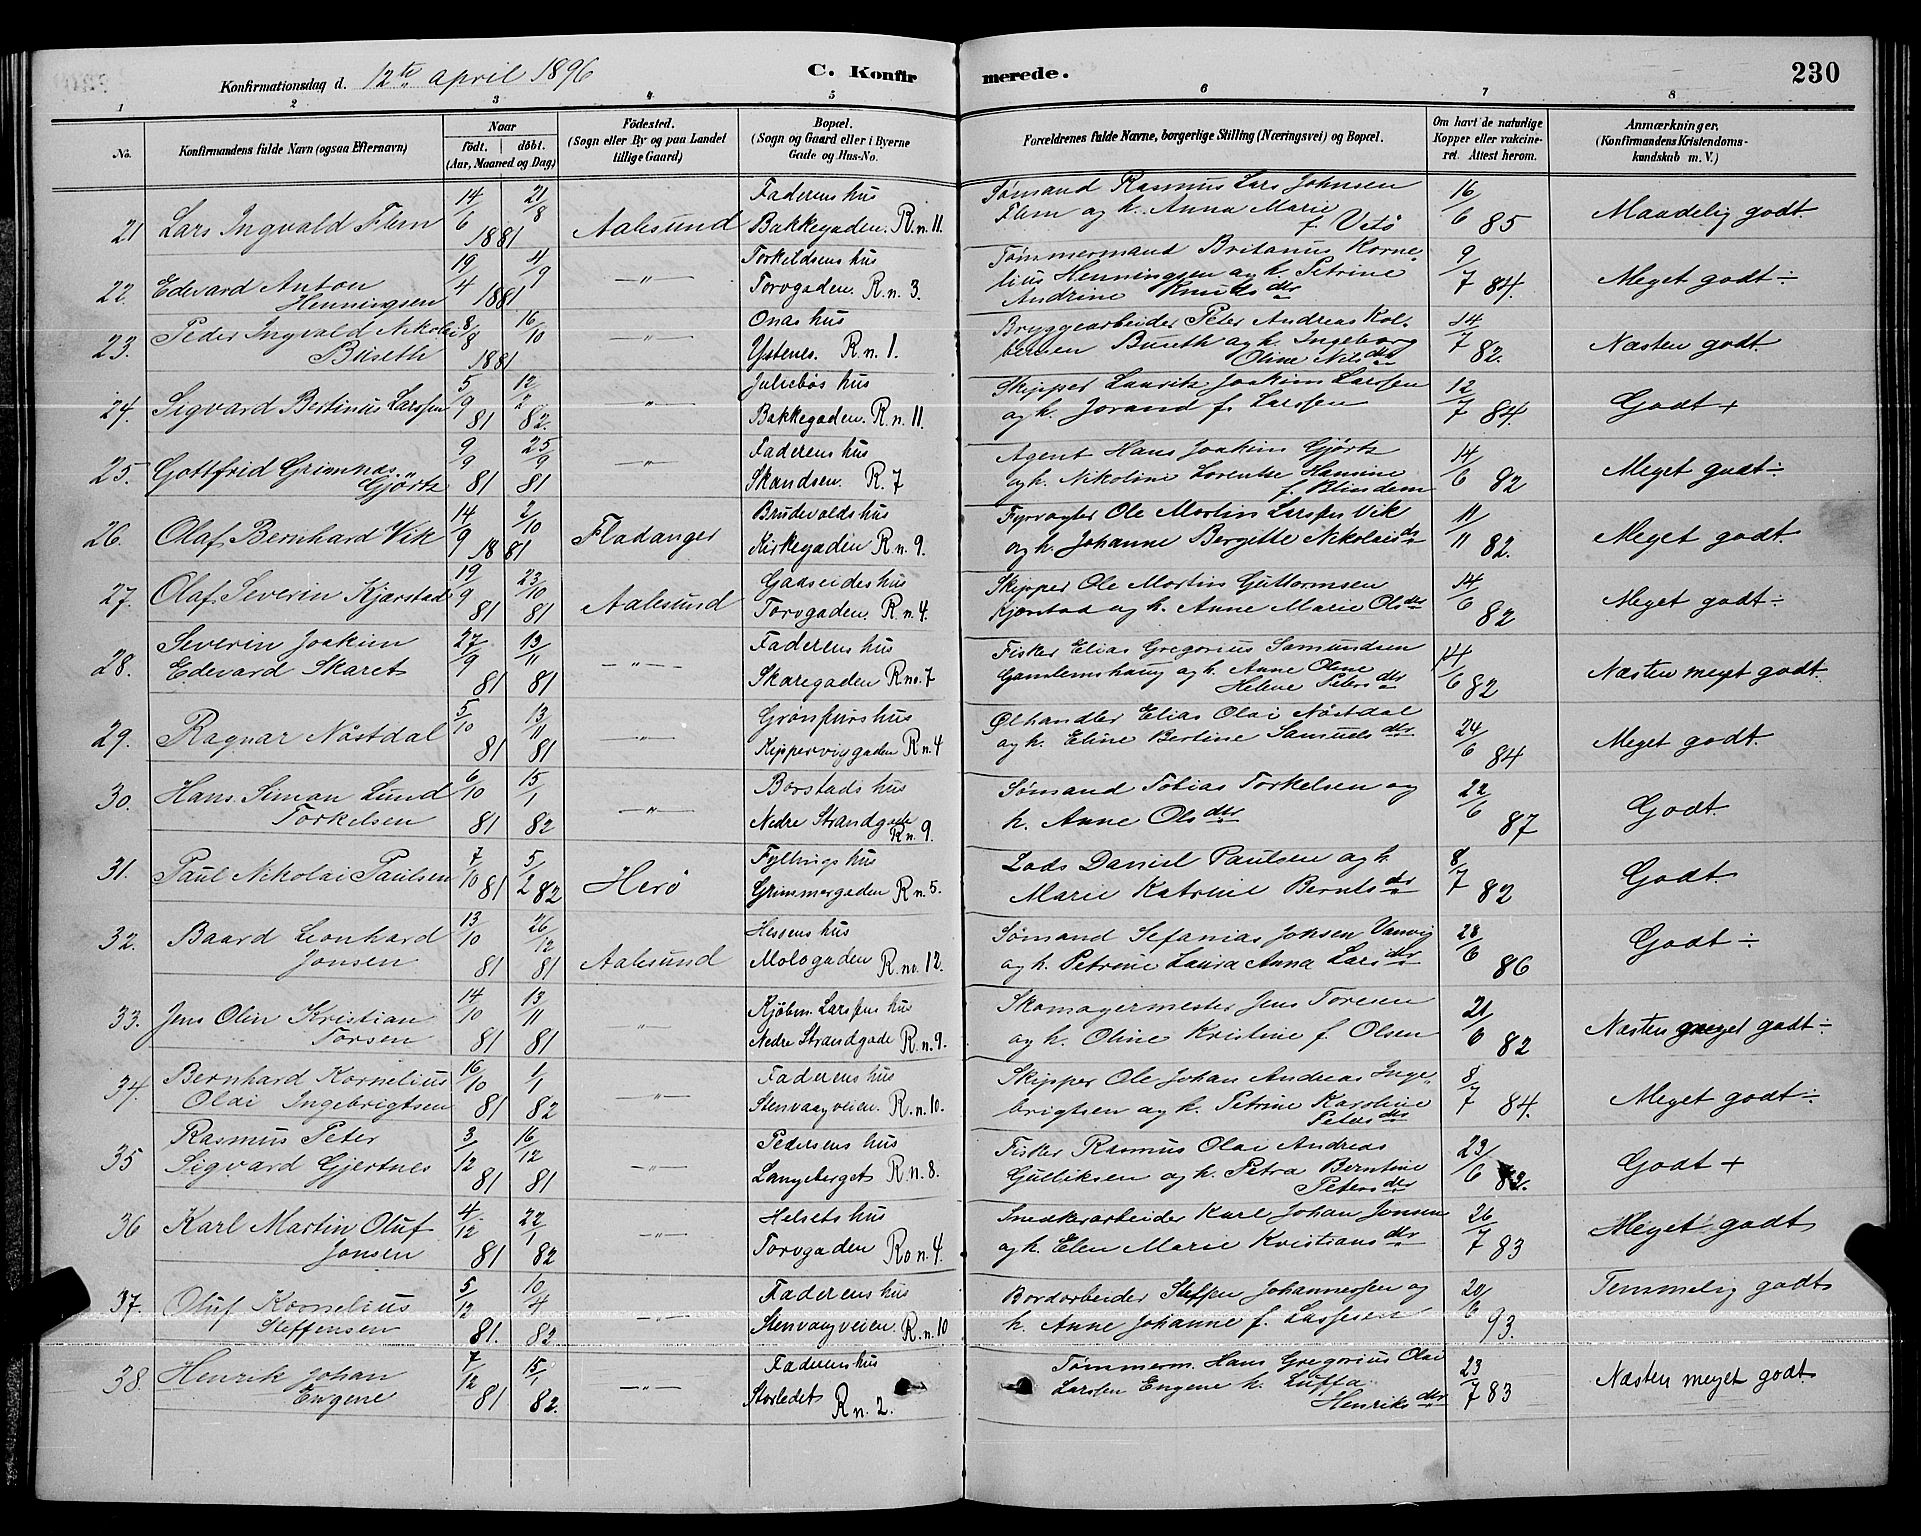 Konfirmationsdag d. 12te april 1896 C. Konfirmerede. 230
1 2 3 4 5 6 7 8
No. Konfirmandens fulde Navn (ogsaa Efternavn) Naar Født. døbt. (Aar, Maaned og Dag) Fødested. (Sogn eller By og paa Landet tillige Gaard) Bopæl. (Sogn og Gaard eller i Byerne Gade og Hus-No. Forældrenes fulde Navne, borgerlige Stilling (Næringsvei) og Bopæl. Om havt de naturlige Kopper eller vakcineret. Attest herom. Anmærkninger. (Konfirmandens Kristendomskundskab m. V.)
21 Lars Ingvald Flem 14/6 1881 21/8 Aalesund Faderens hus Bakkegaden. R.n. 11. Sømand Rasmus Lars Johnsen Flem og h. Anna Marie f. Vetø 16/6 85 Maadelig godt.
22. Edevard Anton Henningsen 19/4 1881 4/9 —"— Torkeldsens hus Torvgaden. R.n. 3. Tømmermand Britanus Kornelius Henningsen og h. Petrine Andrine Knutsdtr 9/7 84. Meget godt ÷
23. Peder Ingvald Nikolai Buseth 8/8 1881 16/10 —"— Onas hus Ystenes. R.n. 1. Bryggearbeider Peter Andreas Kolbensen Buseth og h. Ingeborg Oline Nilsdtr 14/7 82. Næsten godt.
24. Sigvard Bertinus Larssen 5/9 81 12/2 82. —"— Juliebøs hus Bakkegaden. R.n. 11. Skipper Laurits Joakim Larsen og h. Jorand f. Larssen 12/7 84. Godt +
25. Gottfrid Grimnæs Gjørtz 9/9 81 25/9 81 —"— Faderens hus Skandsen. R. 7 Agent Hans Joakim Gjørtz og h. Nikoline Lorentse Hamine f. Blindem 14/6 82 Meget godt ÷
26. Olaf Bernhard Vik 14/9 1881 2/10 Fladanger Brudevolds hus Kirkegaden R.n. 9. Fyrvogter Ole Martin Larssen Vik og h. Johanne Bergitte Nikolaisdtr 11/11 82. Meget godt.
27. Olaf Severin Kjærstad 19/9 81 23/10 81 Aalesund Gaaseides hus Torvgaden. R.n. 4. Skipper Ole Martin Guttormsen Kjærstad og h. Anne Marie Olsdtr 14/6 82 Meget godt ÷
28. Severin Joakim Edevard Skaret 27/9 81 13/11 81 —"— Faderens hus Skaregaden R no. 7 Fisker Elias Gregorius Samundsen Gamlemshaug og h. Anne Oline Helene Petersdtr 14/6 82 Næsten meget godt.
29. Ragnar Nøstdal 5/10 81 13/11 81 —"— Grønfurs hus Kippervigaden R n. 4 Ølhandler Elias Olai Nøstdal og h. Eline Bertine Samuelsdtr 24/6 84 Meget godt.
30. Hans Simon Lund Torkelsen 6/10 81 15/1 82 —"— Børstads hus Nedre Strandgade R.n. 9. Sømand Tobias Torkelsen og h. Anne Olsdtr 22/6 87 Godt.
31. Paul Nikolai Paulsen 7/10 81 5/2 82 Herø Fyllings hus Grimmergaden R n. 5. Lods Daniel Paulsen og h. Marie Katrine Berntsdtr 8/7 82 Godt.
32. Baard Leonhard Jonsen 13/10 81 26/12 81 Aalesund Hessens hus Mologaden R.no. 12. Sømand Sefanias Johsen Vanvig og h. Petrine Laura Anna Larsdtr 28/6 86 Godt ÷
33. Jens Olin Kristian Torsen 14/10 81 13/11 81 —"— Kjøbm. Larssens hus Nedre Strandgade R.n. 9. Skomagermester Jens Toresen og h. Oline Kristine f. Olsen 21/6 82 Næsten meget godt ÷
34. Bernhard Kornelius Olai Ingebrigtsen 16/10 81 1/1 82 —"— Faderens hus Stenvaagveien. R.n. 10. Skipper Ole Johan Andreas Ingebrigtsen og h. Petrine Karoline Petersdtr 8/7 84. Meget godt ÷
35 Rasmus Peter Sigvard Gjertnes 3/12 81 16/12 81 —"— Pedersens hus Langeberget R.n. 8. Fisker Rasmus Olai Andreas Gulliksen og h. Petra Berntine Petersdtr 23/6 82. Godt +
36 Karl Martin Oluf Jonsen 4/12 81 22/1 82 —"— Helsets hus Torvgaden Ro n. 4 Snedkerarbeider Karl Johan Jonsen og h. Elen Marie Kristiansdtr 26/7 83 Meget godt
37. Oluf Kornelius Steffensen 5/12 81. 10/4 82. —"— Faderens hus Stenvaagveien. R.n. 10 Bordarbeider Steffen Johannessen og h. Anne Johanne f. Lassesen 20/6 93. Temmelig godt
38. Henrik Johan Eugene 7/12 81 15/1 82. —"— Faderens hus Storledet R n. 2. Tømmerm. Hans Gregorius Olai Larsen Eugene h. Luffa Henriksdtr 23/7 83 Næsten meget godt.